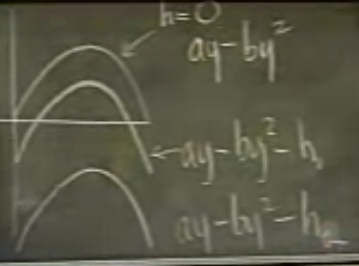 h=0
ay-by²
ay-by²-h
ay-by²-h